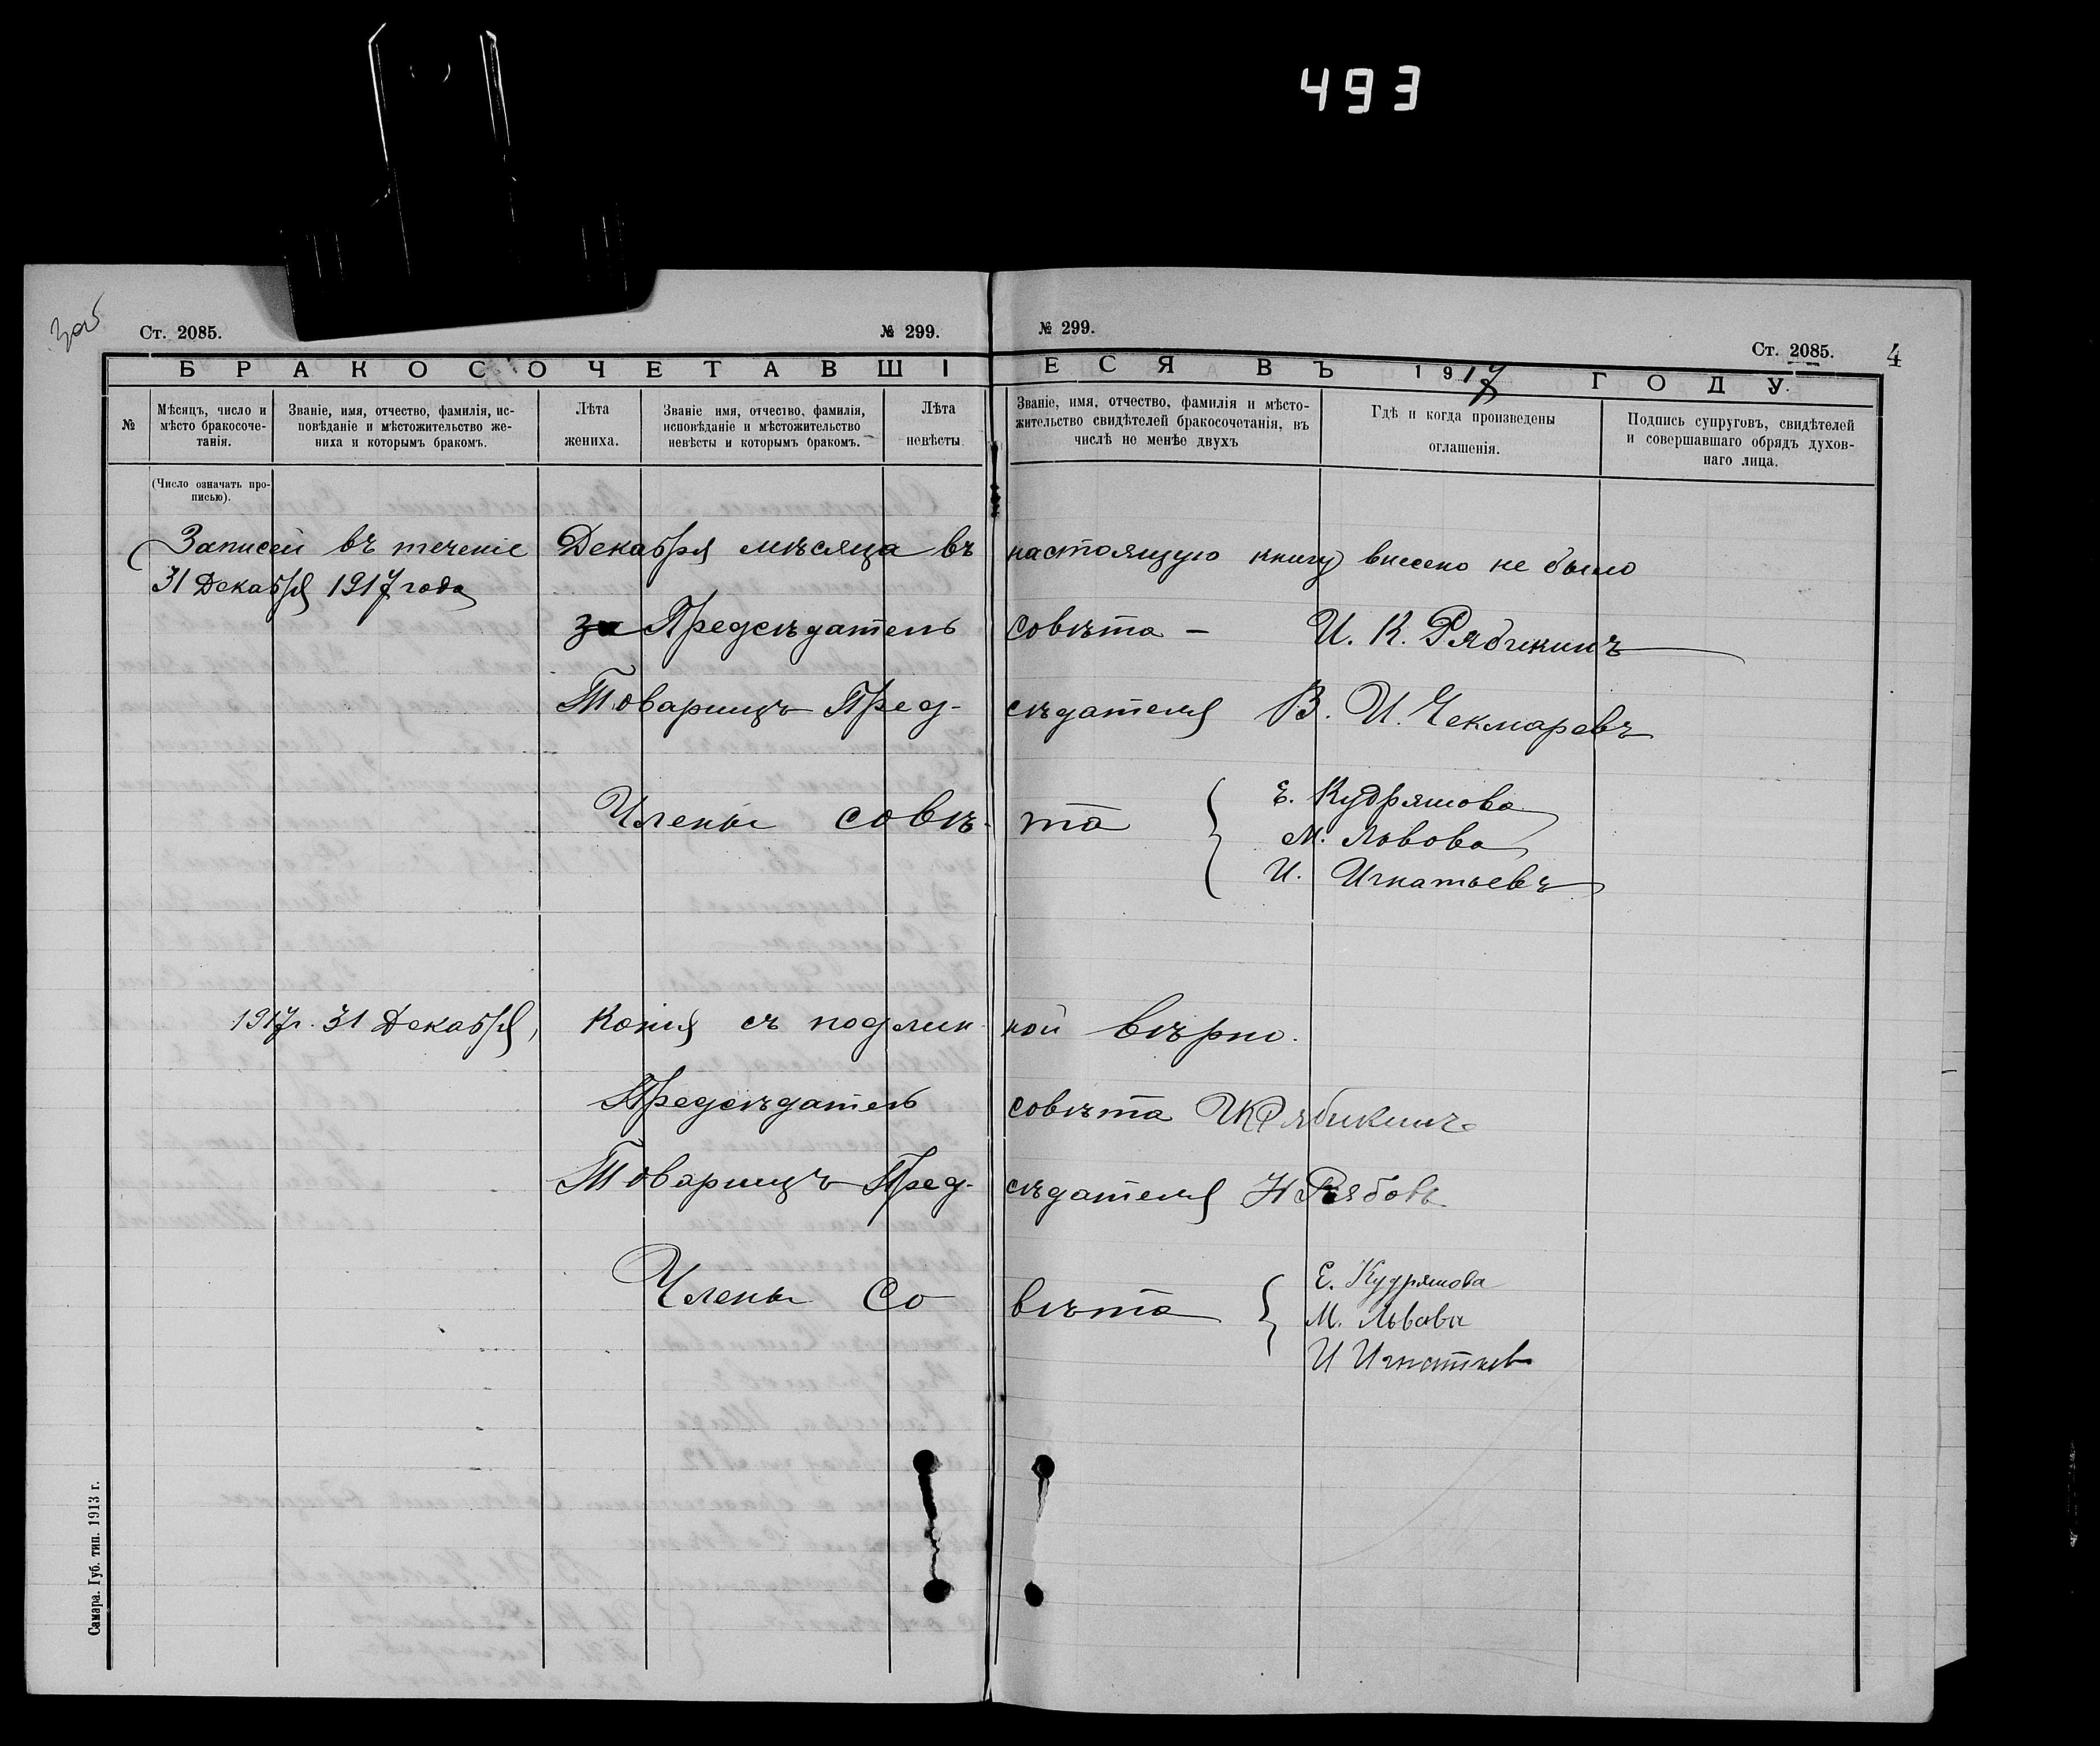 493
Ст. 2085. № 299. № 299. Ст. 2085. 4
БРАКОСОЧЕТАВШІЕСЯ ВЪ 1917 ГОДУ.
№
Мѣсяцъ, число и
мѣсто бракосоче-
танія.
Званіе, имя, отчество, фамилія, ис-
повѣданіе и мѣстожительство же-
ниха и которымъ бракомъ.
Лѣта
жениха.
Званіе имя, отчество, фамилія,
исповѣданіе и мѣстожительство
невѣсты и которымъ бракомъ.
Лѣта
невѣсты.
Званіе, имя, отчество, фамилія и мѣсто-
жительство свидѣтелей бракосочетанія, въ
числѣ не менѣе двухъ
Гдѣ и когда произведены
оглашенія.
Подпись супруговъ, свидѣтелей
и совершавшаго обрядъ духов-
наго лица.
(Число означать про-
писью).
Записей въ теченіе Декабря мѣсяца въ настоящую книгу внесено не было
31 Декабря 1917 года
за Предсѣдатель совѣта – И. К. Рябчикинъ
Товарищъ Пред- сѣдателя В. И. Чекмаревъ
Члены совѣ- та { Е. Кудряшова
М. Львова
И. Игнатьевъ
1917 г. 31 Декабря, Копія съ подлин- ной вѣрно.
Предсѣдатель совѣта
Товарищъ Пред- сѣдателя Н Рябовъ
Члены Со вѣта { Е. Кудряшова
М. Львова
И Игнатьев
Самара. Губ. тип. 1913 г.